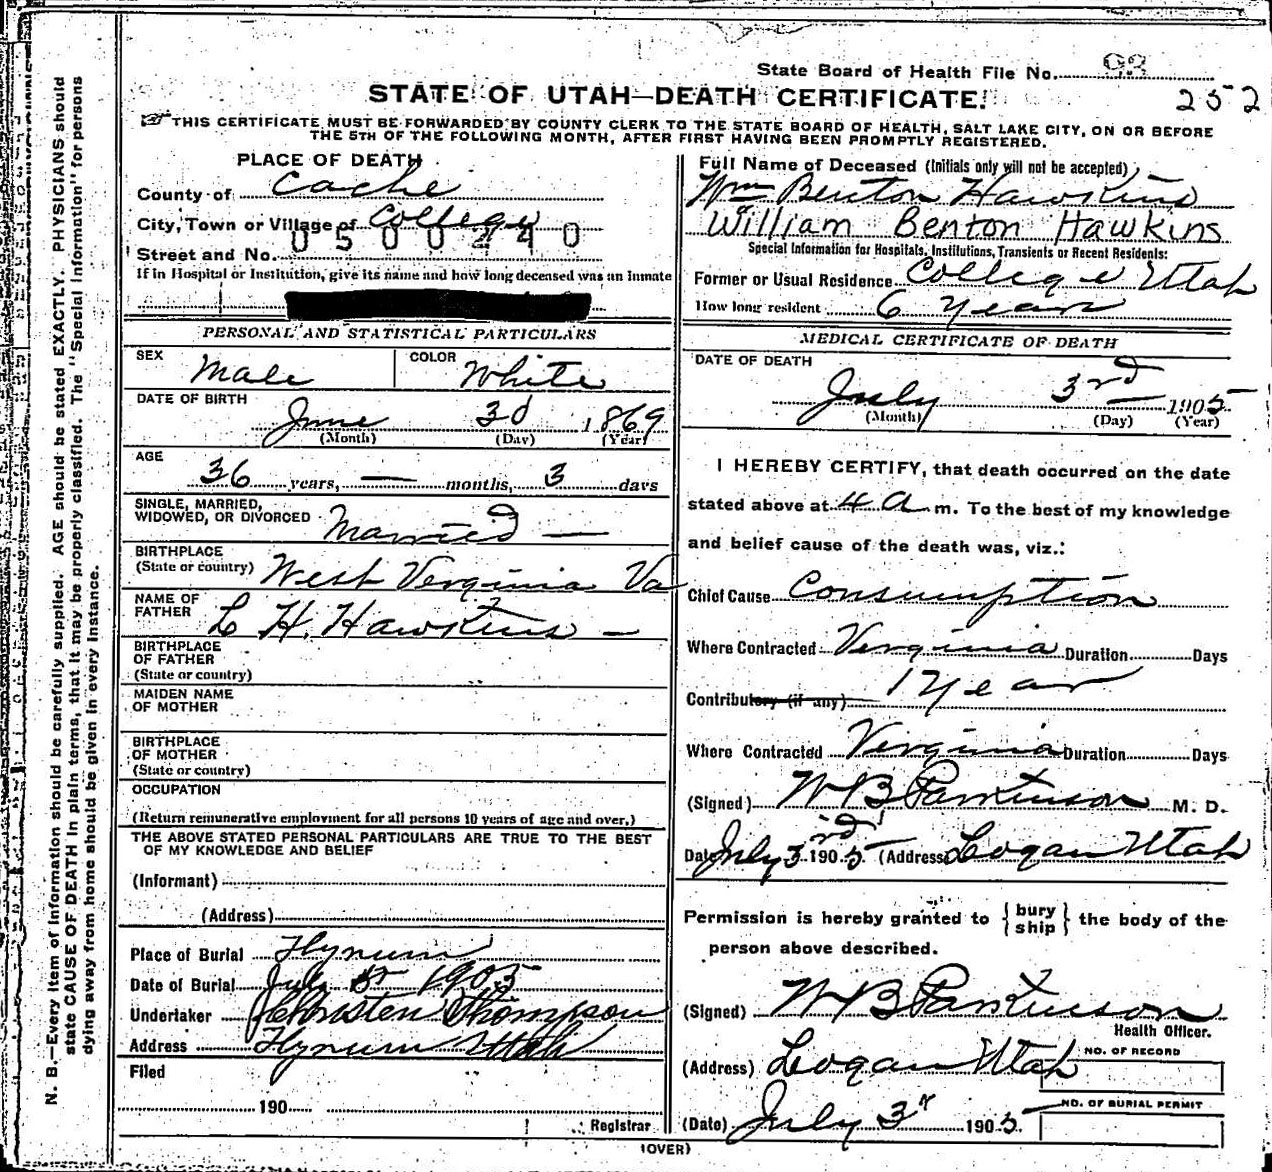 State Board of Health File No. 93
252
STATE OF UTAH—DEATH CERTIFICATE.
THIS CERTIFICATE MUST BE FORWARDED BY COUNTY CLERK TO THE STATE BOARD OF HEALTH, SALT LAKE CITY, ON OR BEFORE
THE 5TH OF THE FOLLOWING MONTH, AFTER FIRST HAVING BEEN PROMPTLY REGISTERED.
PLACE OF DEATH
County of Cache
City, Town or Village of College
0500240
Street and No.
If in Hospital or Institution, give its name and how long deceased was an Inmate
PERSONAL AND STATISTICAL PARTICULARS
SEX Male COLOR White
DATE OF BIRTH
June 3d 1869
(Month) (Day) (Year)
AGE
36 years, — months, 3 days
SINGLE, MARRIED,
WIDOWED, OR DIVORCED Married —
BIRTHPLACE
(State or country) West Verginia Va
NAME OF
FATHER L H. Hawkins —
BIRTHPLACE
OF FATHER
(State or country)
MAIDEN NAME
OF MOTHER
BIRTHPLACE
OF MOTHER
(State or country)
OCCUPATION
(Return remunerative employment for all persons 10 years of age and over.)
THE ABOVE STATED PERSONAL PARTICULARS ARE TRUE TO THE BEST
OF MY KNOWLEDGE AND BELIEF
(Informant)
(Address)
Place of Burial Hyrum
Date of Burial July 5 1905
Undertaker Christen Thompson
Address Hyrum Utah
Filed
190
Registrar
Full Name of Deceased (Initials only will not be accepted)
Wm Benton Hawkins
William Benton Hawkins
Special Information for Hospitals, Institutions, Transients or Recent Residents:
Former or Usual Residence College Utah
How long resident 6 Years
MEDICAL CERTIFICATE OF DEATH
DATE OF DEATH
July 3rd 1905
(Month) (Day) (Year)
I HEREBY CERTIFY, that death occurred on the date
stated above at 4 A m. To the best of my knowledge
and belief cause of the death was, viz.:
Chief Cause Consumption
Where Contracted Verginia Duration Days
Contributory (if any) 1 Year
Where Contracted Verginia Duration Days
(Signed) W B Parkinson M. D.
Date July 3rd 1905 (Address) Logan Utah
Permission is hereby granted to { bury ship } the body of the
person above described.
(Signed) W B Parkinson
Health Officer.
(Address) Logan Utah
NO. OF RECORD
NO. OF BURIAL PERMIT
(Date) July 3r 1905
(OVER)
N. B.—Every item of information should be carefully supplied. AGE should be stated EXACTLY. PHYSICIANS should
state CAUSE OF DEATH in plain terms, that it may be properly classified. The "Special Information" for persons
dying away from home should be given in every instance.